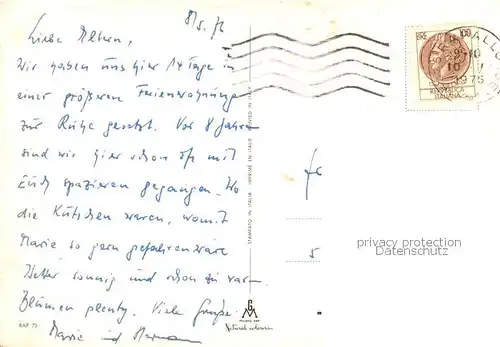 8/5. 76
Liebe Eltern,
Wir haben uns hier 14 Tage in
einer größeren Ferienwohnung
zur Ruhe gesetzt. Vor 8 Jahren
sind wir hier schon oft mit
Euch spazieren gegangen. Wo
die Kutschen waren, womit
Marie so gern gefahren wäre
Wetter sonnig und schon zu warm.
Blumen plenty. Viele Grüße
Marie und Herman
LIRE 100
1976
REPUBBLICA
ITALIANA
STAMPATO IN ITALIA IMPRIMÉ EN ITALIE PRINTED IN ITALY
5
privacy protection
Datenschutz
Natural colours